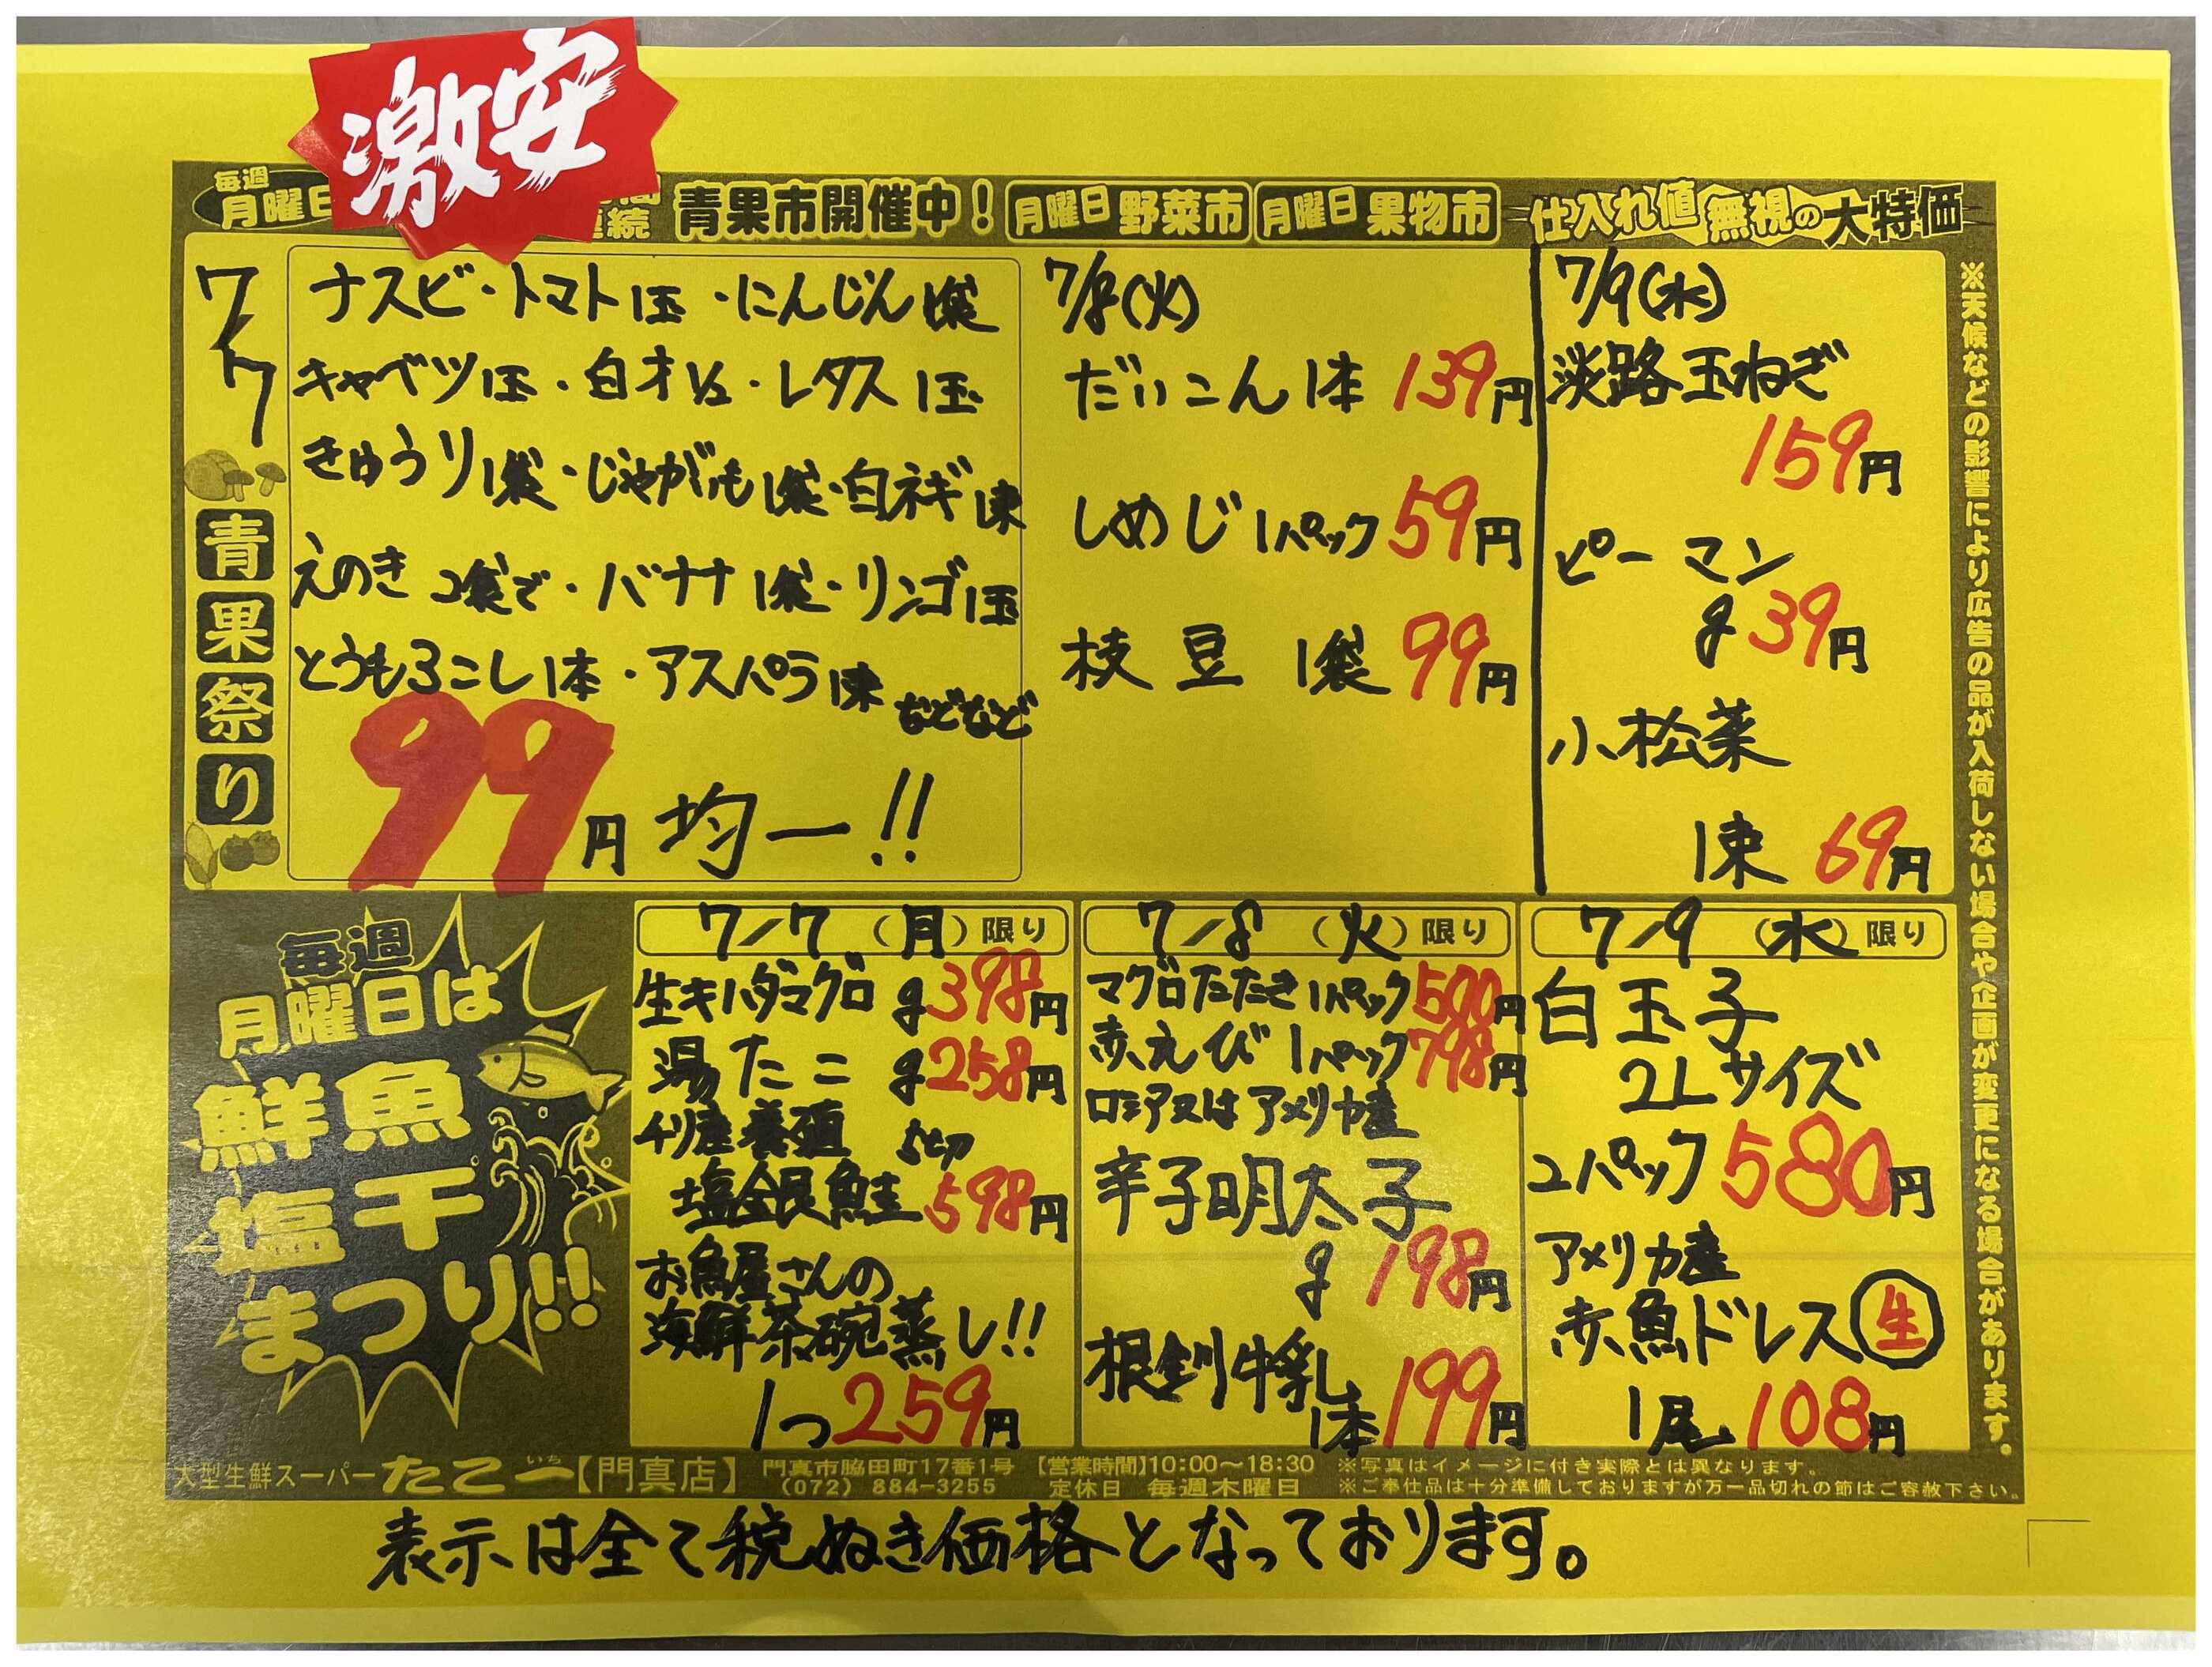 激安
毎週
月曜日
連続
青果市開催中！
月曜日 野菜市
月曜日 果物市
仕入れ値無視の大特価
7/7
青果祭り
ナスビ・トマト1玉・にんじん1袋
キャベツ1玉・白才1/2・レタス1玉
きゅうり1袋・じゃがいも1袋・白ネギ1束
えのき2袋で・バナナ1袋・リンゴ1玉
とうもろこし1本・アスパラ1束などなど
99円均一!!
7/8(火)
だいこん1本 139円
しめじ1パック 59円
枝豆 1袋 99円
7/9(水)
淡路玉ねぎ
159円
ピーマン
g 39円
小松菜
1束 69円
※天候などの影響により広告の品が入荷しない場合や企画が変更になる場合があります。
毎週
月曜日は
鮮魚
塩干
まつり!!
7/7（月）限り
生キハダマグロ g398円
湯たこ g258円
チリ産養殖 5切
塩銀鮭 598円
お魚屋さんの
海鮮茶碗蒸し!!
1つ259円
7/8（火）限り
マグロたたき1パック500円
赤えび1パック798円
ロシア又はアメリカ産
辛子明太子
g 198円
根釧牛乳
1本199円
7/9（水）限り
白玉子
2Lサイズ
2パック580円
アメリカ産
赤魚ドレス 生
1尾108円
大型生鮮スーパー たこ一【門真店】
いち
門真市脇田町17番1号
（072）884-3255
【営業時間】10:00～18:30
定休日 毎週木曜日
※写真はイメージに付き実際とは異なります。
※ご奉仕品は十分準備しておりますが万一品切れの節はご容赦下さい。
表示は全て税ぬき価格となっております。